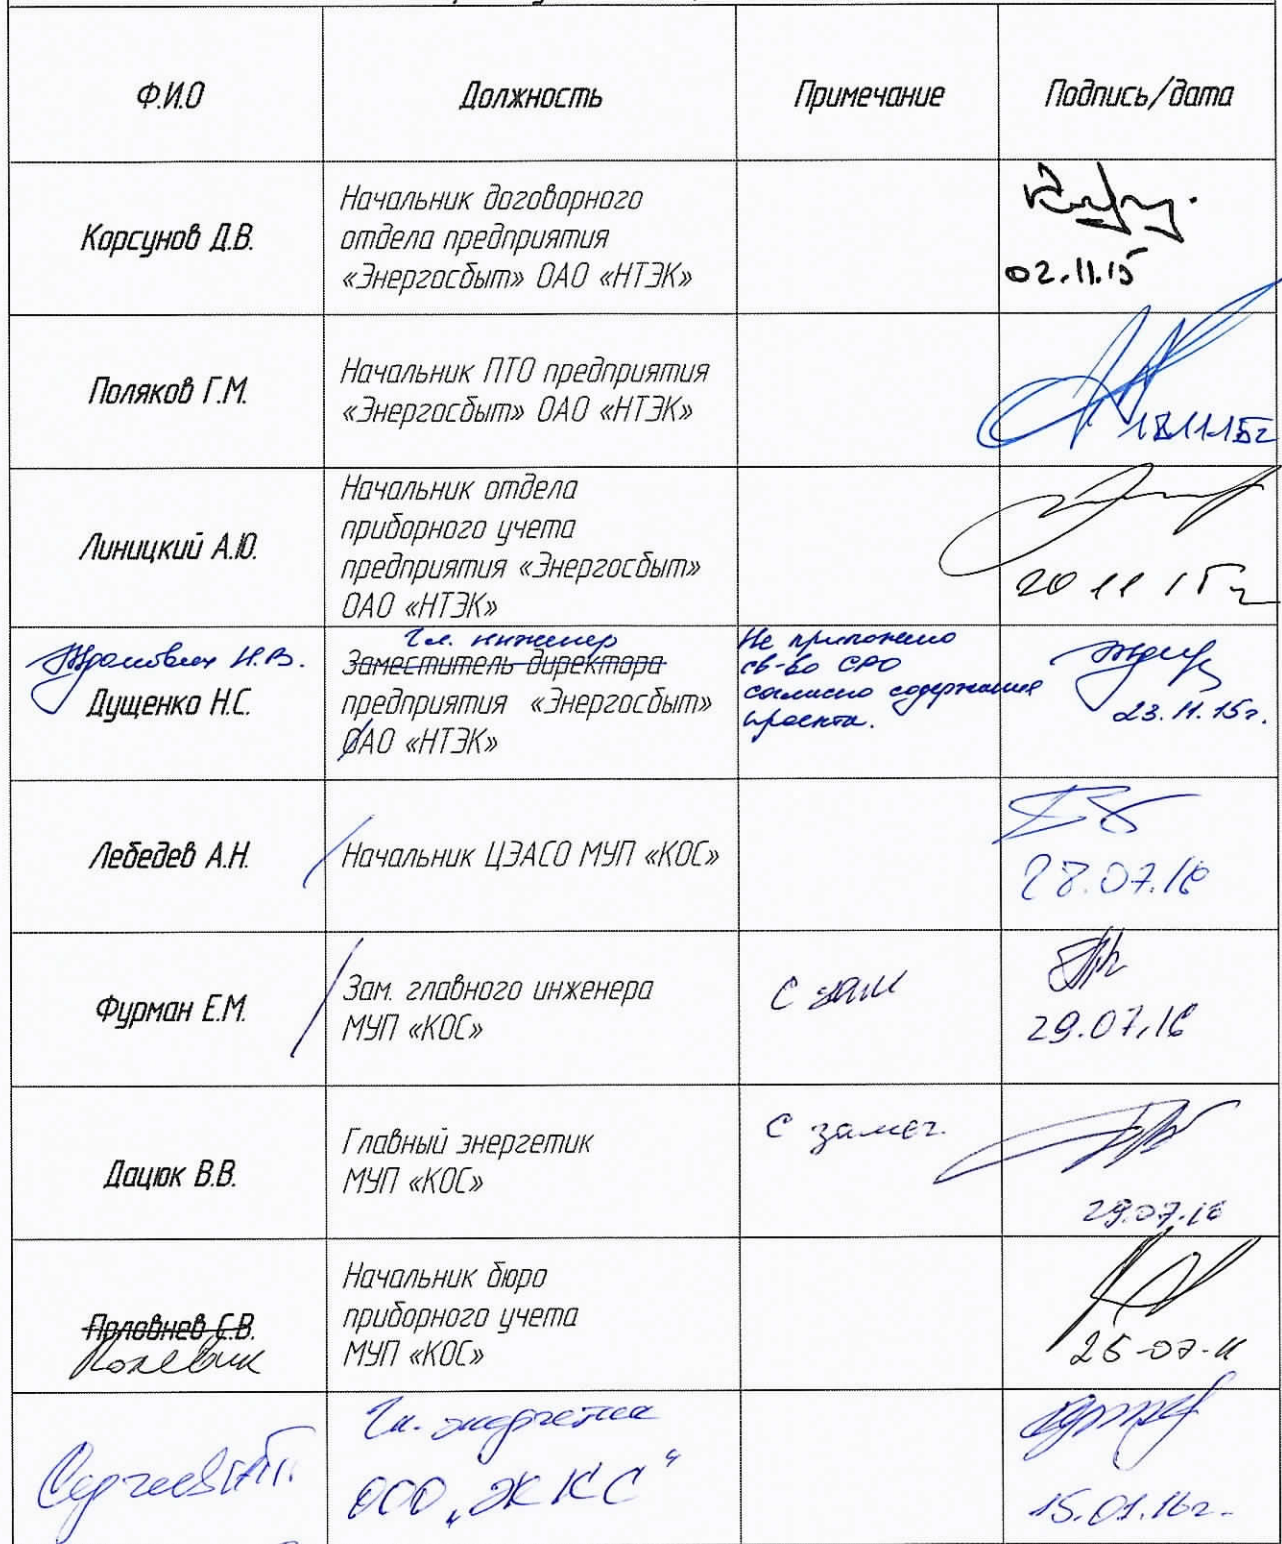 Ф.И.О
Должность
Примечание
Подпись/дата
Корсунов Д.В.
Начальник договорного
отдела предприятия
«Энергосбыт» ОАО «НТЭК»
02.11.15
Поляков Г.М.
Начальник ПТО предприятия
«Энергосбыт» ОАО «НТЭК»
18.11.15г
Линицкий А.Ю.
Начальник отдела
приборного учета
предприятия «Энергосбыт»
ОАО «НТЭК»
20 11 15г
Н.В.
Дущенко Н.С.
Гл. инженер
Заместитель директора
предприятия «Энергосбыт»
ОАО «НТЭК»
Не приложено
св-во СРО
согласно содержания
проекта.
23.11.15г.
Лебедев А.Н.
Начальник ЦЭАСО МУП «КОС»
28.07.16
Фурман Е.М.
Зам. главного инженера
МУП «КОС»
С зам
29.07.16
Дацюк В.В.
Главный энергетик
МУП «КОС»
С замеч.
29.07.16
Половнев С.В.
Начальник бюро
приборного учета
МУП «КОС»
Гл. энергетик
ООО „ЖККС"
15.01.16г.